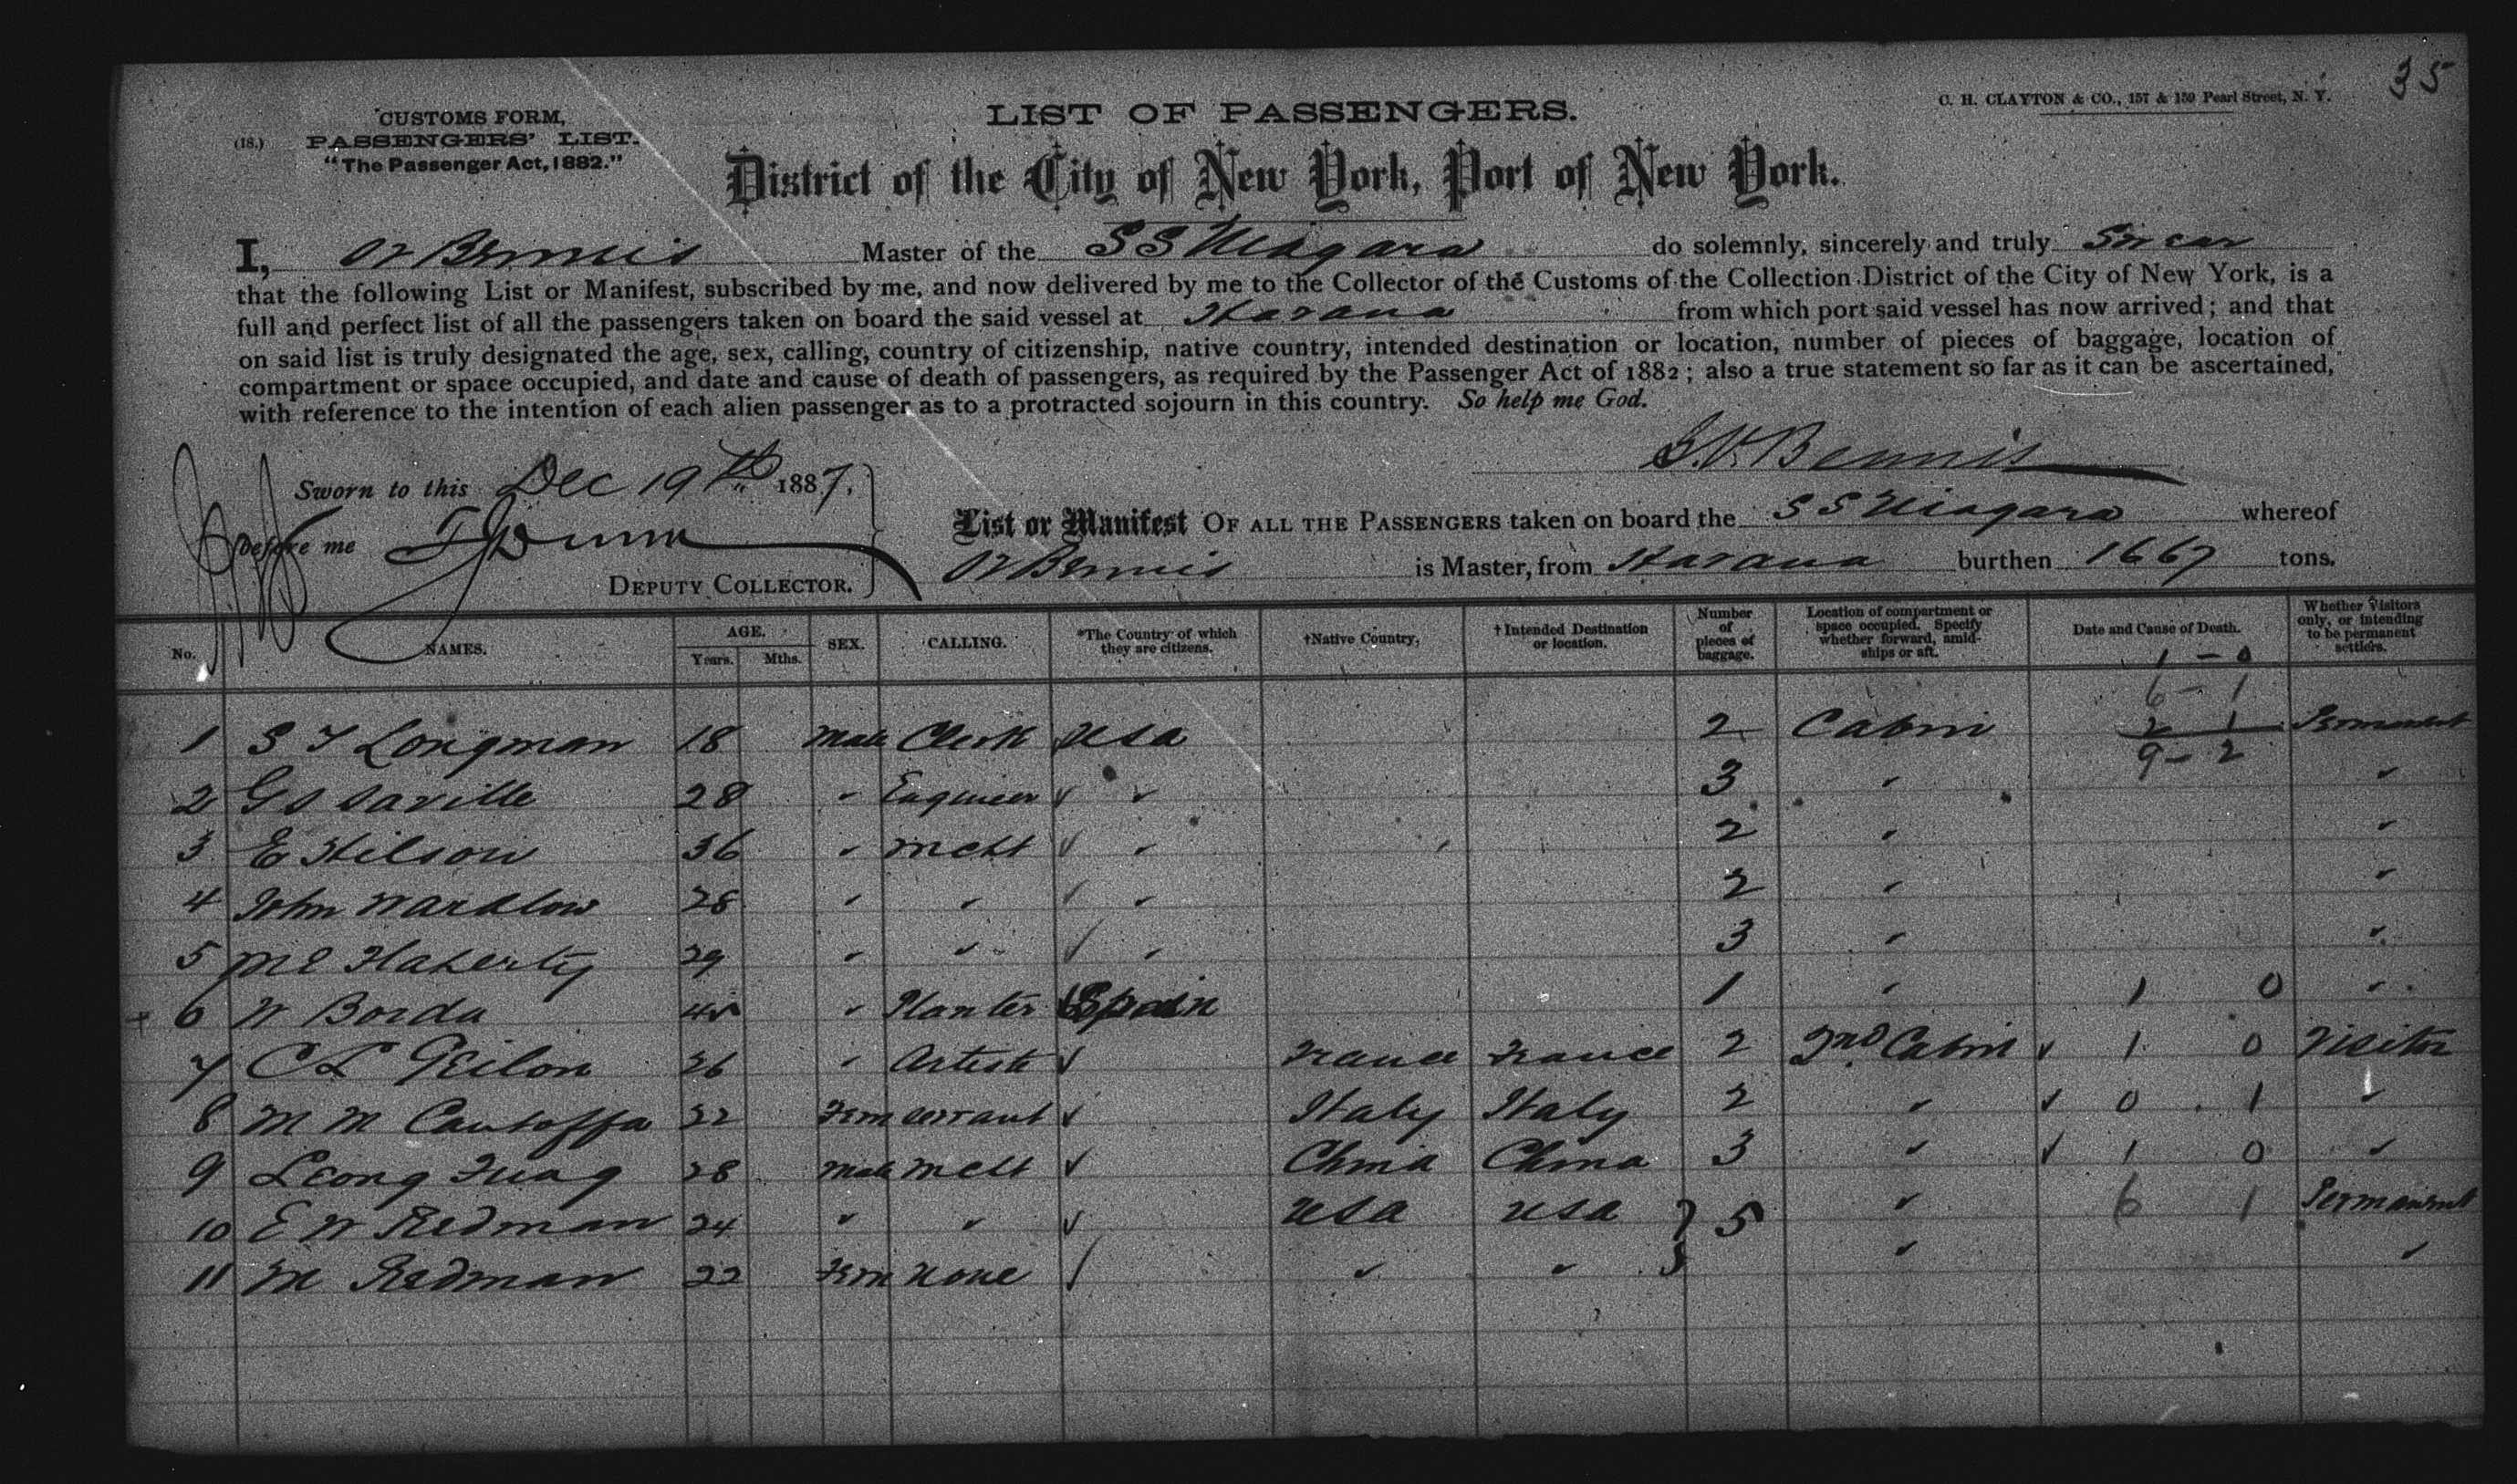 35
CUSTOMS FORM,
(18.) PASSENGERS' LIST.
"The Passenger Act, 1882."
LIST OF PASSENGERS.
C. H. CLAYTON & CO., 157 & 159 Pearl Street, N. Y.
District of the City of New York, Port of New York.
I, Bennis Master of the S S Niagara do solemnly, sincerely and truly Swear
that the following List or Manifest, subscribed by me, and now delivered by me to the Collector of the Customs of the Collection District of the City of New York, is a
full and perfect list of all the passengers taken on board the said vessel at Havana from which port said vessel has now arrived; and that
on said list is truly designated the age, sex, calling, country of citizenship, native country, intended destination or location, number of pieces of baggage, location of
compartment or space occupied, and date and cause of death of passengers, as required by the Passenger Act of 1882; also a true statement so far as it can be ascertained,
with reference to the intention of each alien passenger as to a protracted sojourn in this country. So help me God.
Bennis
Sworn to this Dec 19th 1887.
before me
DEPUTY COLLECTOR.
List or Manifest OF ALL THE PASSENGERS taken on board the S S Niagara whereof
Bennis is Master, from Havana burthen 1667 tons.
No. NAMES. AGE. Years. Mths. SEX. CALLING. *The Country of which they are citizens. †Native Country. †Intended Destination or location. Number of pieces of baggage. Location of compartment or space occupied. Specify whether forward, amid-ships or aft. Date and Cause of Death. Whether Visitors only, or intending to be permanent settlers.
1 - 0
6 - 1
2 1
9 - 2
1 S T Longman 18 Male Clerk USA 2 Cabin Permanent
2 G S Saville 28 " Engineer " " 3 " "
3 E Hilson 36 " Mcht " " 2 " "
4 John Wardlow 28 " " " " 2 " "
5 Flaherty 29 " " " " 3 " "
6 Borda " Planter Spain 1 " 1 0 "
7 C L 26 " Artist France France 2 2nd Cabin 1 0 Visitor
8 M M 22 Fem servant Italy Italy 2 " 0 1 "
9 Leong 28 Male Mcht China China 3 " 1 0 "
10 E W Redman 24 " " USA USA } 5 " 6 1 Permanent
11 M Redman 22 Fem None " " " "